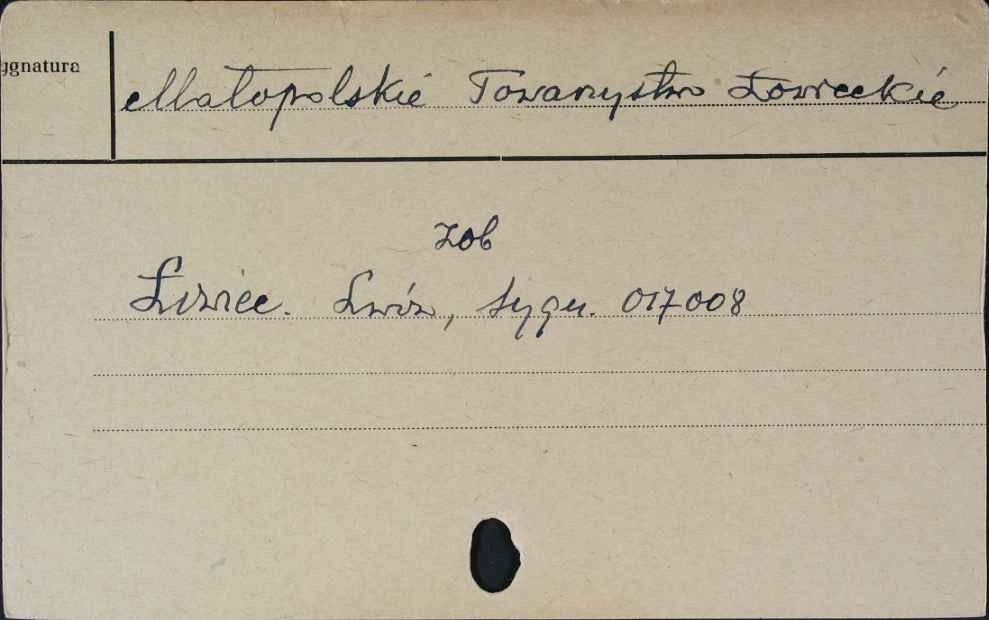 ygnatura
Małopolskie Towarzystwo Łowieckie
zob
Łowiec. Lwów, sygn. 017008